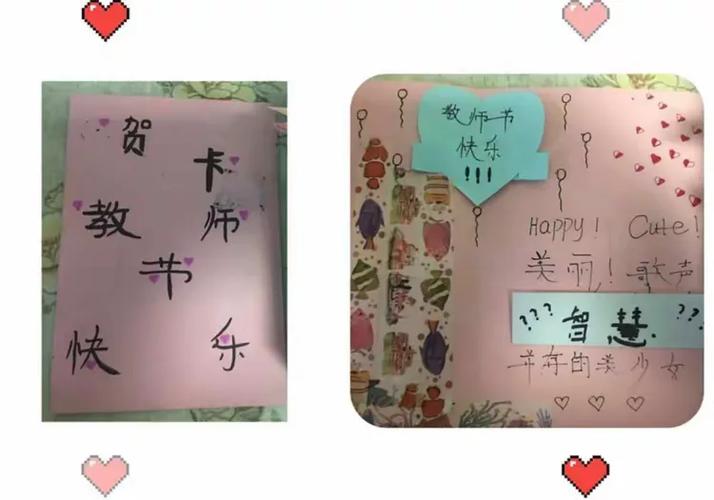 贺卡
教师
节
快乐
教师节
快乐
!!!
Happy! Cute!
美丽!歌声
???智慧.??
并存的美少女